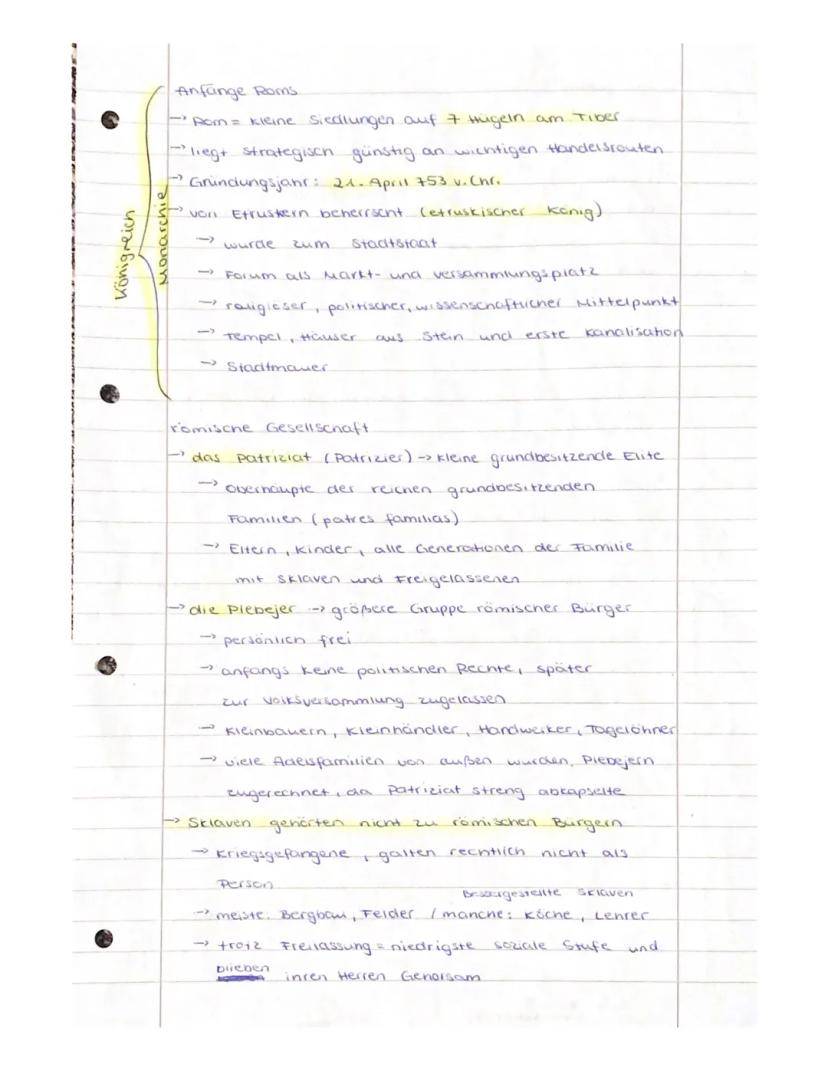 Anfänge Roms
→ Rom = kleine Siedlungen auf 7 Hügeln am Tiber
→ liegt strategisch günstig an wichtigen Handelsrouten
→ Gründungsjahr: 21. April 753 v. Chr.
→ von Etruskern beherrscht (etruskischer König)
→ wurde zum Stadtstaat
→ Forum als Markt- und Versammlungsplatz
→ religieser, politischer, wissenschaftlicher Mittelpunkt
→ Tempel, Häuser aus Stein und erste Kanalisation
→ Stadtmauer
Königreich
Monarchie
römische Gesellschaft
→ das Patriziat (Patrizier) → kleine grundbesitzende Elite
→ Oberhäupte der reichen grundbesitzenden
Familien (patres familias)
→ Eltern, Kinder, alle Generationen der Familie
mit Sklaven und Freigelassenen
→ die Plebejer → größere Gruppe römischer Bürger
→ persönlich frei
→ anfangs keine politischen Rechte, später
zur Volksversammlung zugelassen
→ Kleinbauern, Kleinhändler, Handwerker, Tagelöhner
→ viele Adelsfamilien von außen wurden Plebejern
zugerechnet, da Patriziat streng abkapselte
→ Sklaven gehörten nicht zu römischen Bürgern
→ Kriegsgefangene, galten rechtlich nicht als
Person
Bessergestellte Sklaven
→ meiste: Bergbau, Felder / manche: Köche, Lehrer
→ trotz Freilassung = niedrigste soziale Stufe und
blieben ihren Herren Gehorsam